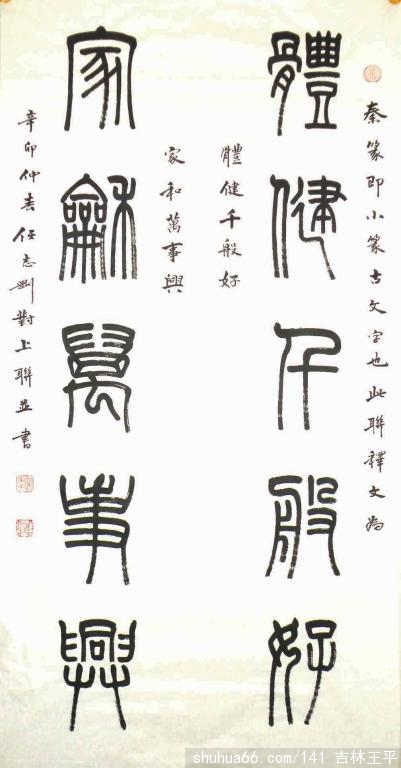 秦篆即小篆古文字也此聯釋文為
體健千般好
體健千般好
家和萬事興
家龢萬事興
辛卯仲春任志刚對上聯並書
shuhua66.com/141 吉林王平